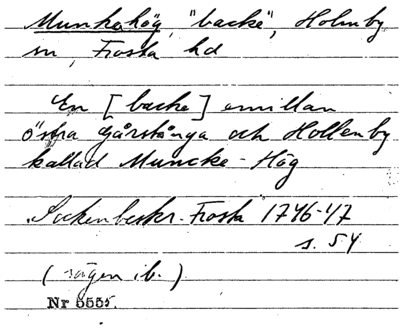 Munkahög, "backe", Holmby
sn, Frosta hd
En [backe] emillan
östra Gårstånga och Hollenby
kallad Muncke-Hög
Sockenbeskr. Frosta 1746-47
s. 54
(sägen ib.)
Nr 5555.